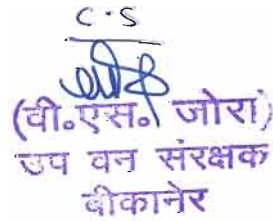 C.S
(वी॰एस॰ जोरा)
उप वन संरक्षक
बीकानेर